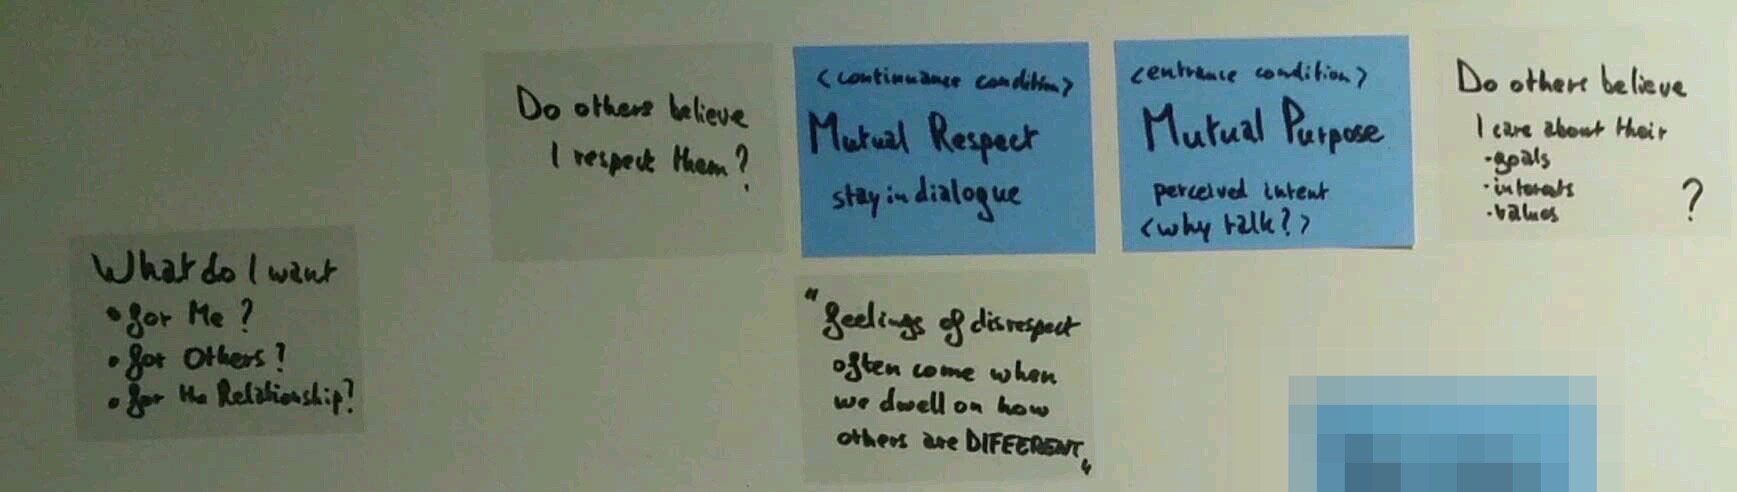 Do others believe
I respect them?
<continuance condition>
Mutual Respect
stay in dialogue
<entrance condition>
Mutual Purpose
perceived intent
<why talk?>
Do others believe
I care about their
•goals
•interests
•values ?
What do I want
• for Me?
• for Others?
• for the Relationship?
"feelings of disrespect
often come when
we dwell on how
others are DIFFERENT"